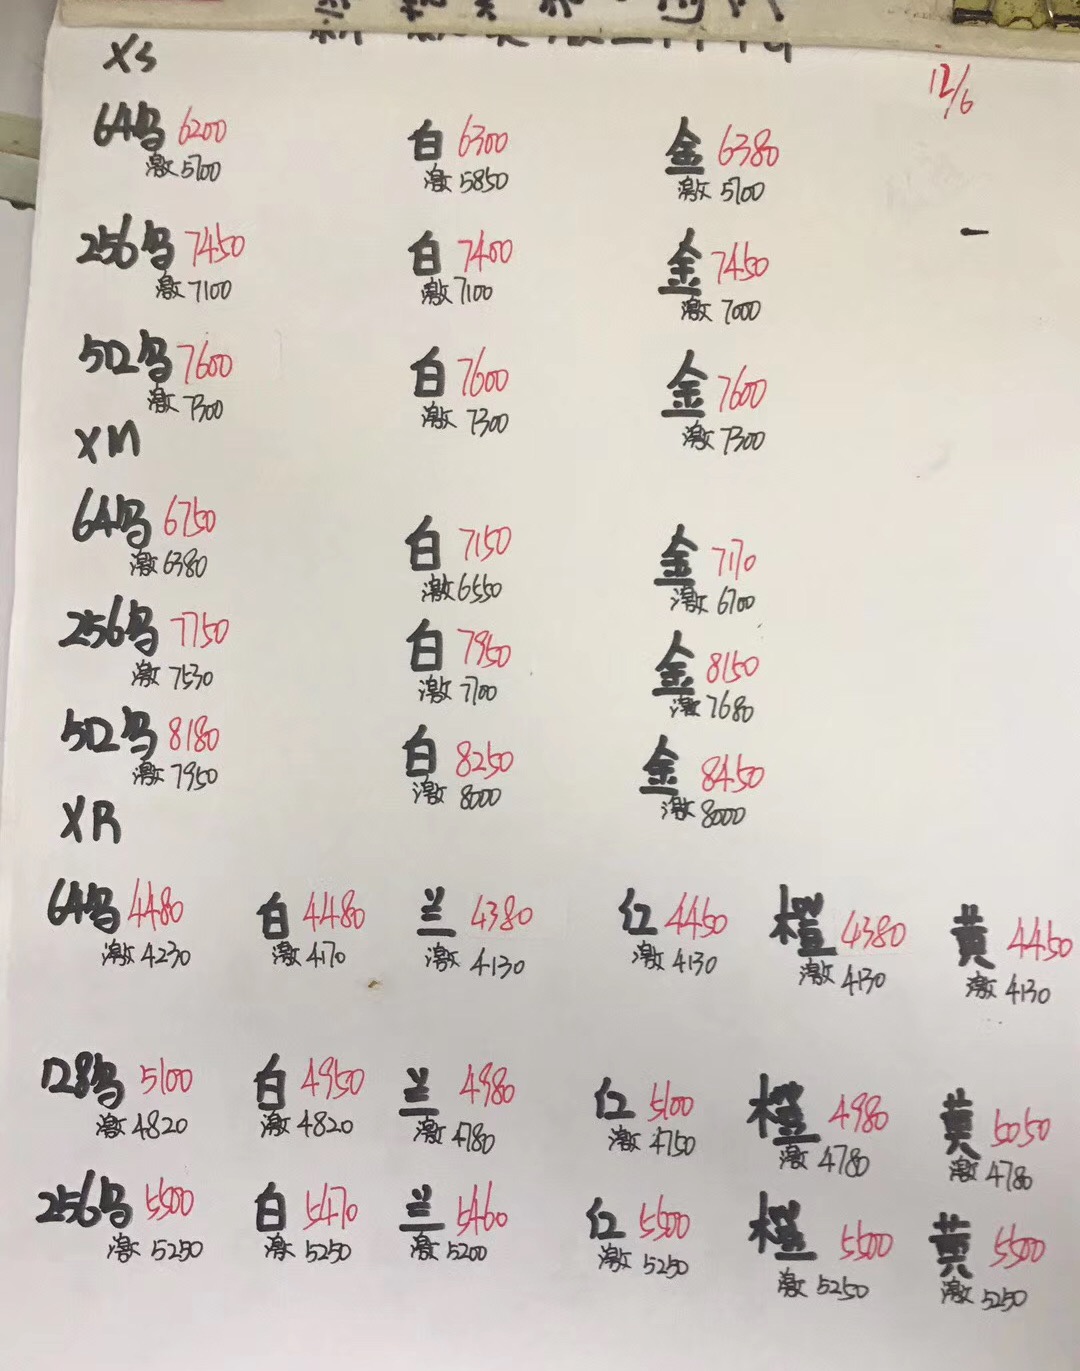 12/6
XS
64乌 6200 白 6300 金 6380
激 5700 激 5850 激 5700
256乌 7450 白 7400 金 7450
激 7100 激 7100 激 7000
512乌 7600 白 7600 金 7600
激 7300 激 7300 激 7300
XM
64乌 6750 白 7150 金 7170
激 6380 激 6550 激 6700
256乌 7750 白 7950 金 8150
激 7530 激 7700 激 7680
512乌 8180 白 8250 金 8450
激 7950 激 8000 激 8000
XR
64乌 4480 白 4480 兰 4380 红 4450 橙 4380 黄 4450
激 4230 激 4170 激 4130 激 4130 激 4130 激 4130
128乌 5100 白 4950 兰 4980 红 5100 橙 4980 黄 5050
激 4820 激 4820 激 4780 激 4750 激 4780 激 4780
256乌 5500 白 5470 兰 5460 红 5500 橙 5500 黄 5500
激 5250 激 5250 激 5200 激 5250 激 5250 激 5250